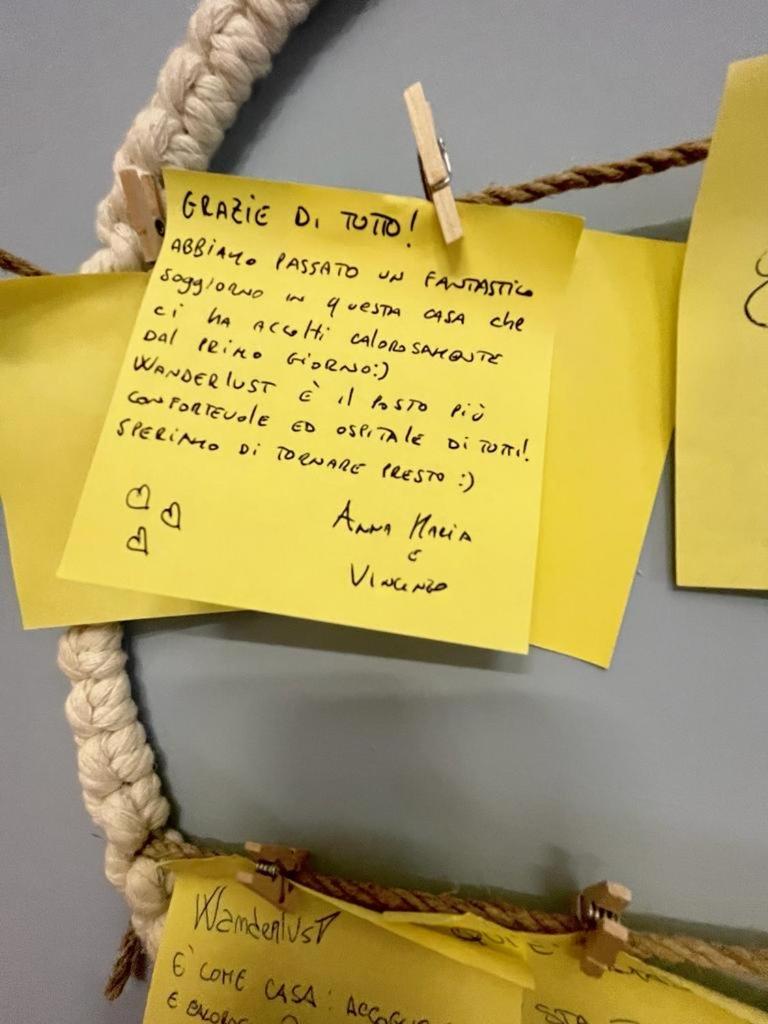 GRAZIE DI TUTTO!
ABBIAMO PASSATO UN FANTASTICO
SOGGIORNO IN QUESTA CASA CHE
CI HA ACCOLTI CALOROSAMENTE
DAL PRIMO GIORNO:)
WANDERLUST È IL POSTO PIÙ
CONFORTEVOLE ED OSPITALE DI TUTTI!
SPERIAMO DI TORNARE PRESTO :)
ANNA MARIA
E
VINCENZO
WanderlusT
E' COME CASA:
E
QUI E'